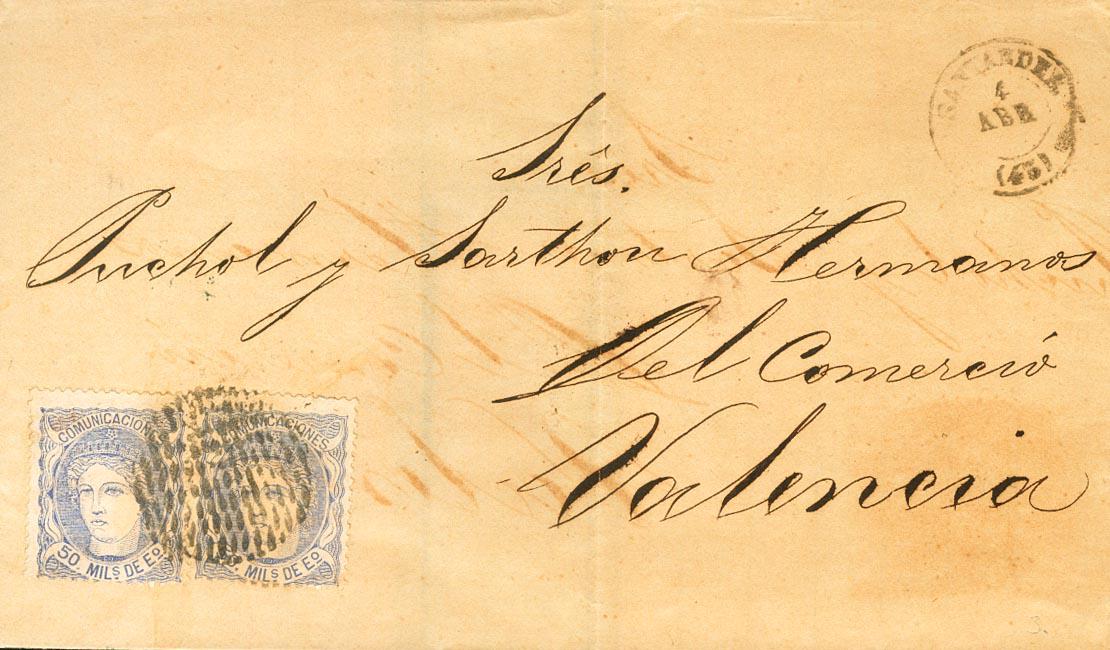 SANTANDER
4
ABR
(43)
Srês.
Puchol y Sarthou Hermanos
Del Comerció
Valencia
COMUNICACIONES COMUNICACIONES
50. MILS DE Eo. MILS DE Eo.
3.